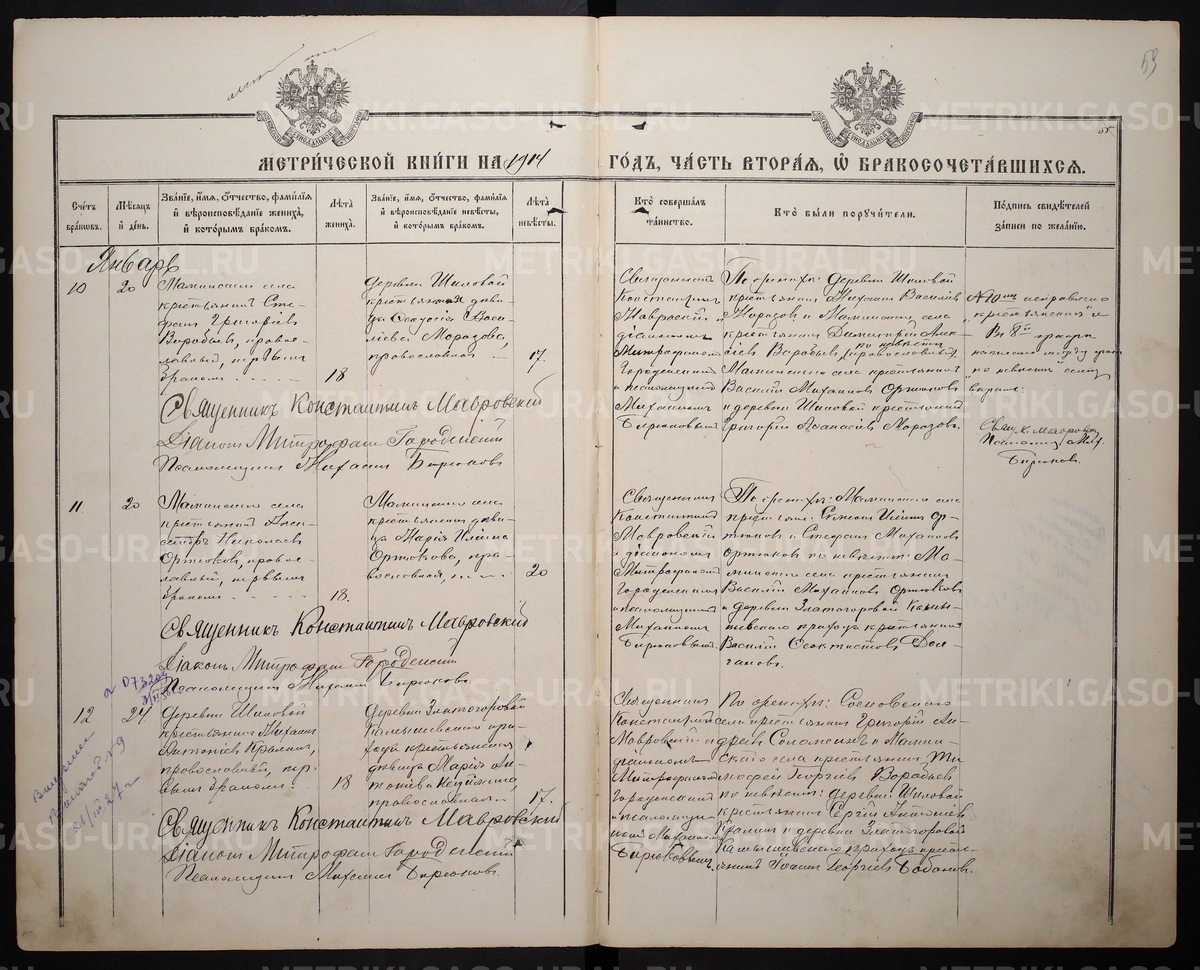 59
МЕТРИ́ЧЕСКОЙ КНИ́ГИ НА 1914 ГО́ДЪ, ЧА́СТЬ ВТОРА́Я, Ѡ БРАКОСОЧЕТА́ВШИХСЯ.
Сче́тъ бра́ковъ.
Мѣ́сяцъ и́ де́нь.
Зва́нїе, и́мя, о́тчество, фами́лїя и́ вѣроисповѣ́данїе жениха̀, и́ кото́рымъ бра́комъ.
Лѣ́та жениха̀.
Зва́нїе, и́мя, о́тчество, фами́лїя и́ вѣроисповѣ́данїе невѣ́сты, и́ кото́рымъ бра́комъ.
Лѣ́та невѣ́сты.
Кто̀ соверша́лъ та́инство.
Кто̀ бы́ли поручи́тели.
По́дпись свидѣ́телей за́писи по жела́нїю.
Январь
10
20
Маминскаго села
крестьянинъ Сте-
фанъ Григоріевъ
Воробьев, право-
славный, первымъ
бракомъ
18
деревни Шиловой
крестьянская дѣви-
ца
Васи-
ліева Морозова,
православная
17.
Священникъ
Константинъ
Мавровскій
діакономъ
Митрофаномъ
Городенскимъ
и псаломщикомъ
Михаиломъ
Бирюковымъ
По женихѣ: деревни Шиловой
крестьянинъ Михаилъ Василіев
Морозов и Маминскаго села
крестьянинъ Димитрій Алек-
сіевъ Воробьев, по невѣстѣ
Маминскаго села крестьянинъ
Василій Михаиловъ Ортюковъ
и деревни Шиловой крестьянинъ
Григорій Аѳанасіевъ Морозовъ.
№ 10 исправлено
"крестьянская" и
въ 8й графѣ
написано между строкъ
"по невѣстѣ"
вѣрно:
Свящ. К. Мавровскій
Псаломщ. Мих.
Бирюковъ.
Священникъ Константинъ Мавровскій
Діаконъ Митрофанъ Городенскій
Псаломщикъ Михаилъ Бирюковъ
11
20
Маминскаго села
крестьянинъ Алек-
сандръ Николаев
Ортюков, право-
славный, первымъ
бракомъ
18.
Маминскаго села
крестьянская дѣви-
ца Марія Ильина
Ортюкова, пра-
вославная,
20
Священникъ
Константинъ
Мавровскій
съ діакономъ
Митрофаномъ
Городенскимъ
и псаломщикомъ
Михаиломъ
Бирюковымъ
По женихѣ: Маминскаго села
крестьяне: Симеонъ Ильинъ Ор-
тюковъ и Стефанъ Михаиловъ
Ортюковъ по невѣстѣ: Ма-
минскаго села крестьянинъ
Василій Михаиловъ Ортюковъ
и деревни Златогоровой Камы-
шевскаго прихода крестьянинъ
Василій Ѳеоктистовъ Дол-
гановъ.
Священникъ Константинъ Мавровскій
Діаконъ Митрофанъ Городенскій
Псаломщикъ Михаилъ Бирюковъ.
12
24
деревни Шиловой
крестьянинъ Михаилъ
Антоніевъ
православный, пер-
вымъ бракомъ.
18
деревни Златогоровой
Камышевскаго при-
хода крестьянская
дѣвица Марія Ан-
тоніева
православная
17.
Священникъ
Константинъ
Мавровскій
діакономъ
Митрофаномъ
Городенскимъ
и псаломщи-
комъ Михаиломъ
Бирюковымъ.
По женихѣ: Сосновскаго
села крестьянинъ Григорій Ан-
дреев Соломеинъ и Мамин-
скаго села крестьянинъ Ти-
моѳей Георгіевъ Воробьев
по невѣстѣ: деревни Шиловой
крестьянинъ Сергій
и деревни Златогоровой
Камышевскаго прихода кресть-
янинъ Іоаннъ Георгіевъ Бабановъ.
Священникъ Константинъ Мавровскій
Діаконъ Митрофанъ Городенскій
Псаломщикъ Михаилъ Бирюковъ.
METRIKI.GASO-URAL.RU